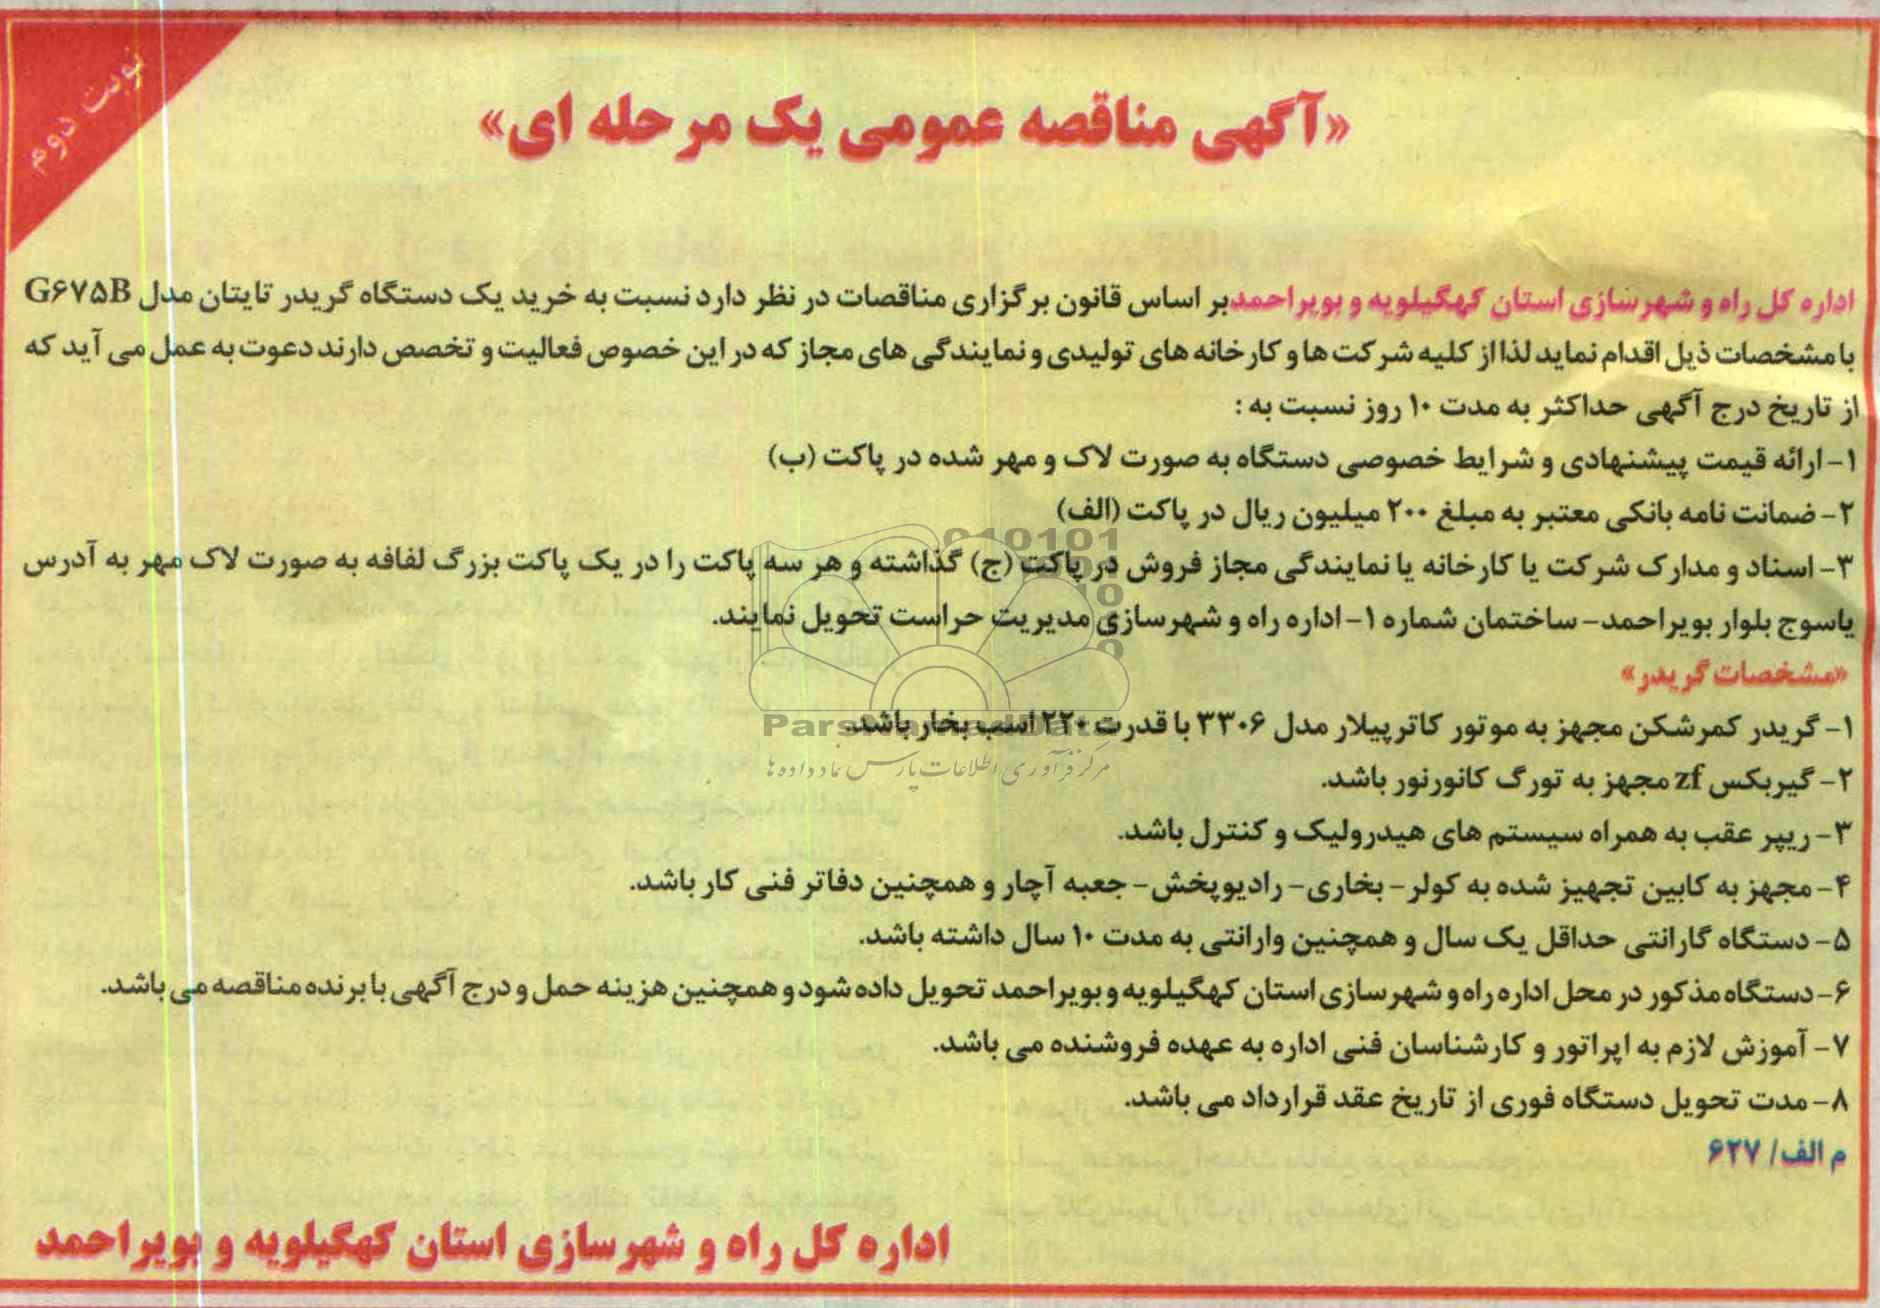 نوبت دوم
«آگهی مناقصه عمومی یک مرحله ای»
اداره کل راه و شهرسازی استان کهگیلویه و بویراحمد بر اساس قانون برگزاری مناقصات در نظر دارد نسبت به خرید یک دستگاه گریدر تایتان مدل G۶۷۵B
با مشخصات ذیل اقدام نماید لذا از کلیه شرکت ها و کارخانه های تولیدی و نمایندگی های مجاز که در این خصوص فعالیت و تخصص دارند دعوت به عمل می آید که
از تاریخ درج آگهی حداکثر به مدت ۱۰ روز نسبت به :
۱- ارائه قیمت پیشنهادی و شرایط خصوصی دستگاه به صورت لاک و مهر شده در پاکت (ب)
۲- ضمانت نامه بانکی معتبر به مبلغ ۲۰۰ میلیون ریال در پاکت (الف)
۳- اسناد و مدارک شرکت یا کارخانه یا نمایندگی مجاز فروش در پاکت (ج) گذاشته و هر سه پاکت را در یک پاکت بزرگ لفافه به صورت لاک مهر به آدرس
یاسوج بلوار بویراحمد- ساختمان شماره ۱- اداره راه و شهرسازی مدیریت حراست تحویل نمایند.
«مشخصات گریدر»
۱- گریدر کمرشکن مجهز به موتور کاترپیلار مدل ۳۳۰۶ با قدرت ۲۲۰ اسب بخار باشد.
ParsNamadData
مرکز فرآوری اطلاعات پارس نماد داده ها
۲- گیربکس zf مجهز به تورگ کانورنور باشد.
۳- ریپر عقب به همراه سیستم های هیدرولیک و کنترل باشد.
۴- مجهز به کابین تجهیز شده به کولر- بخاری- رادیوپخش- جعبه آچار و همچنین دفاتر فنی کار باشد.
۵- دستگاه گارانتی حداقل یک سال و همچنین وارانتی به مدت ۱۰ سال داشته باشد.
۶- دستگاه مذکور در محل اداره راه و شهرسازی استان کهگیلویه و بویراحمد تحویل داده شود و همچنین هزینه حمل و درج آگهی با برنده مناقصه می باشد.
۷- آموزش لازم به اپراتور و کارشناسان فنی اداره به عهده فروشنده می باشد.
۸- مدت تحویل دستگاه فوری از تاریخ عقد قرارداد می باشد.
م الف/ ۶۲۷
اداره کل راه و شهرسازی استان کهگیلویه و بویراحمد